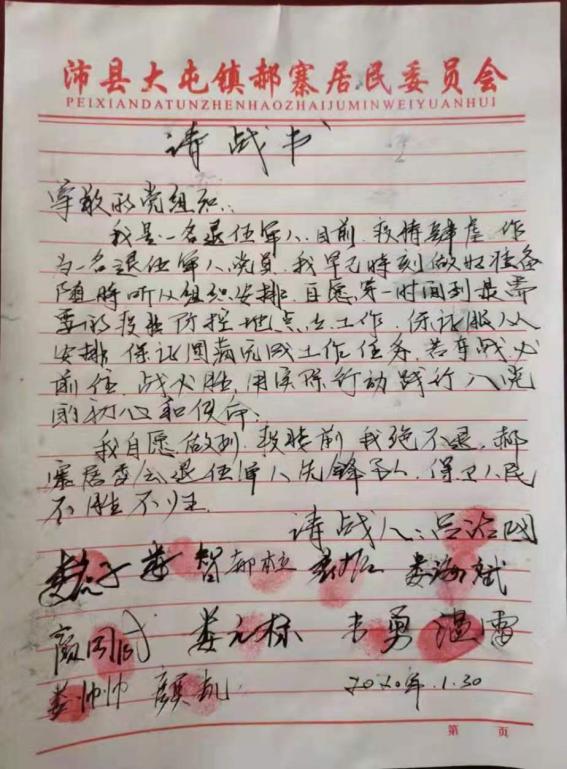 沛县大屯镇郝寨居民委员会
PEIXIANDATUNZHENHAOZHAIJUMINWEIYUANHUI
请战书
尊敬的党组织:
我是一名退伍军人,目前,疫情肆虐,作
为一名退伍军人、党员,我早已时刻做好准备
随时听从组织安排,自愿第一时间到最需
要的疫情防控地点去工作,保证服从
安排,保证圆满完成工作任务,若有战必
前往,战必胜,用实际行动践行入党
的初心和使命。
我自愿做到,疫情前我绝不退,郝
寨居委会退伍军人先锋队,保卫人民
不胜不归
请战人:吕洽
智 郝 娄海斌
娄元栋 勇 温雷
娄帅帅 颜凯 2020年.1.30
第 页